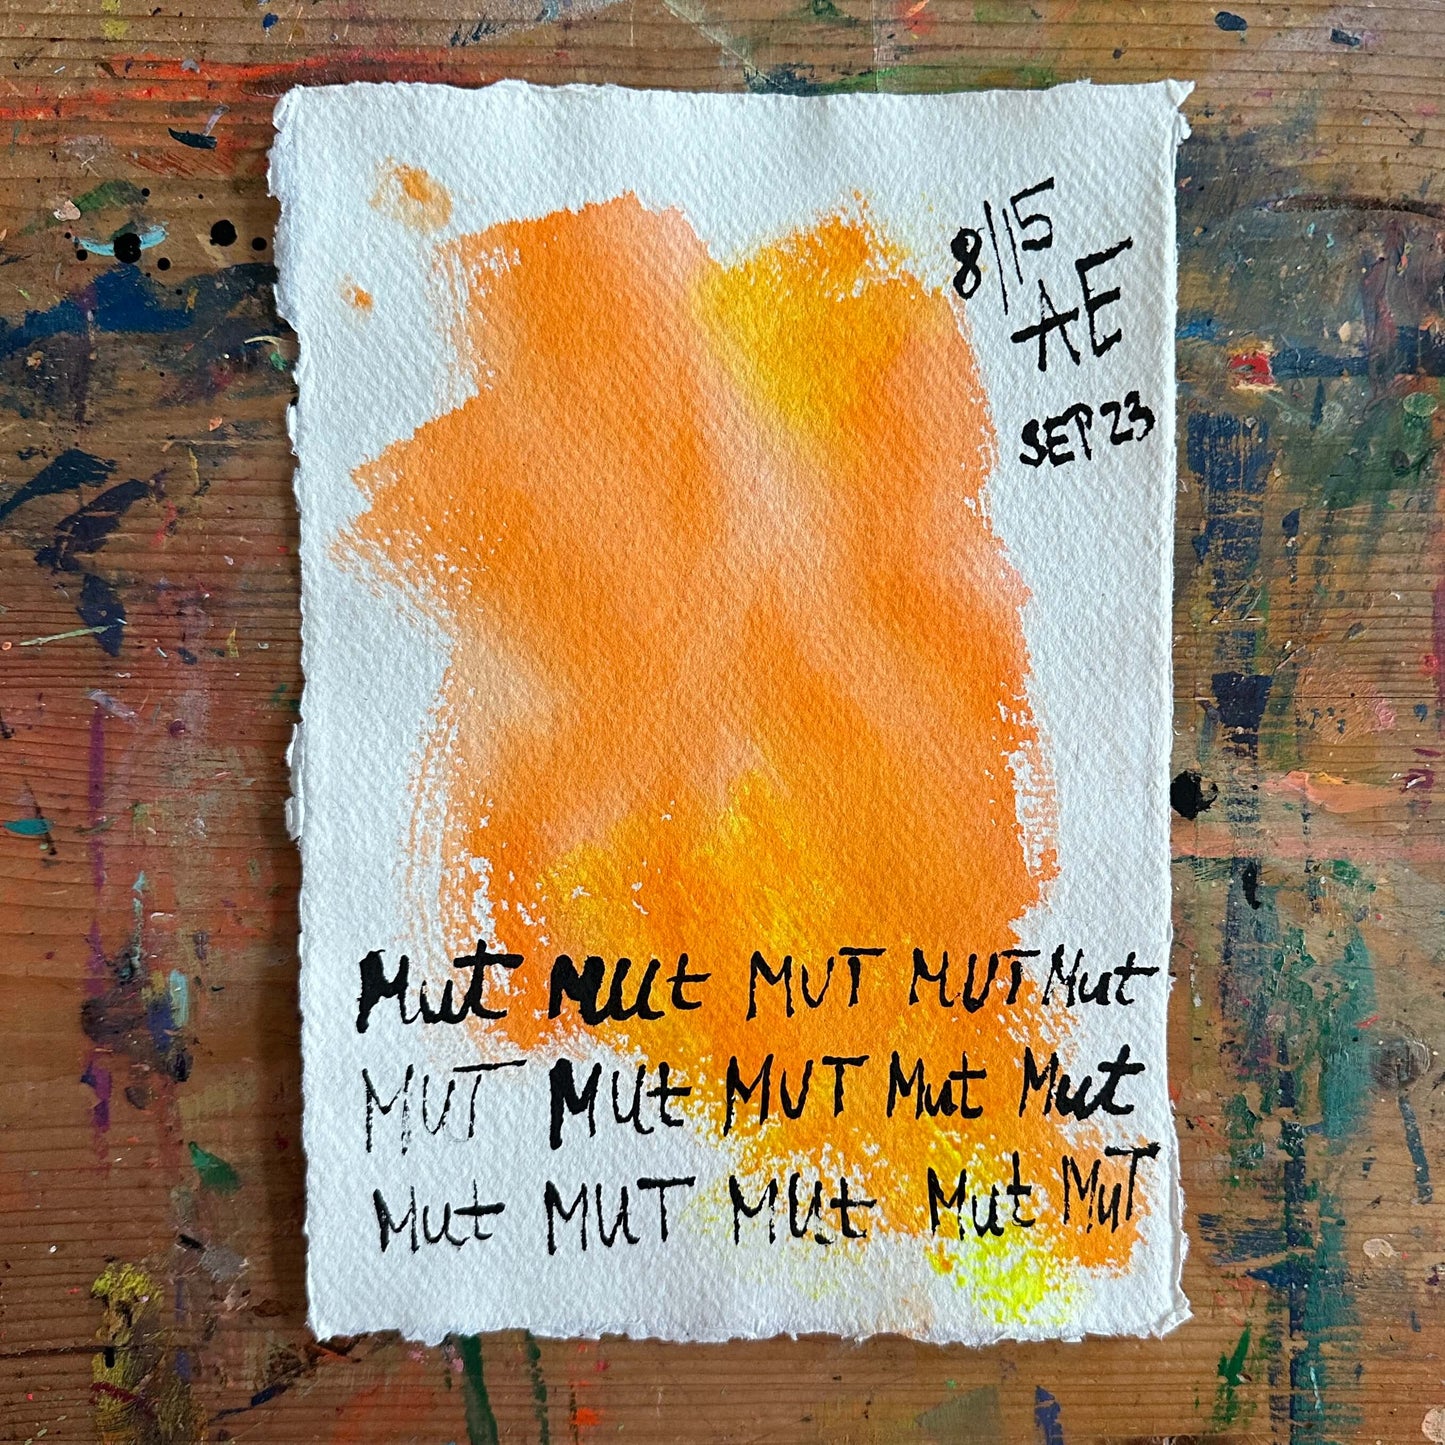 8/15
AE
SEP 23
Mut Mut MUT MUT Mut
MUT MUt MUT Mut Mut
Mut MUT Mut Mut MuT